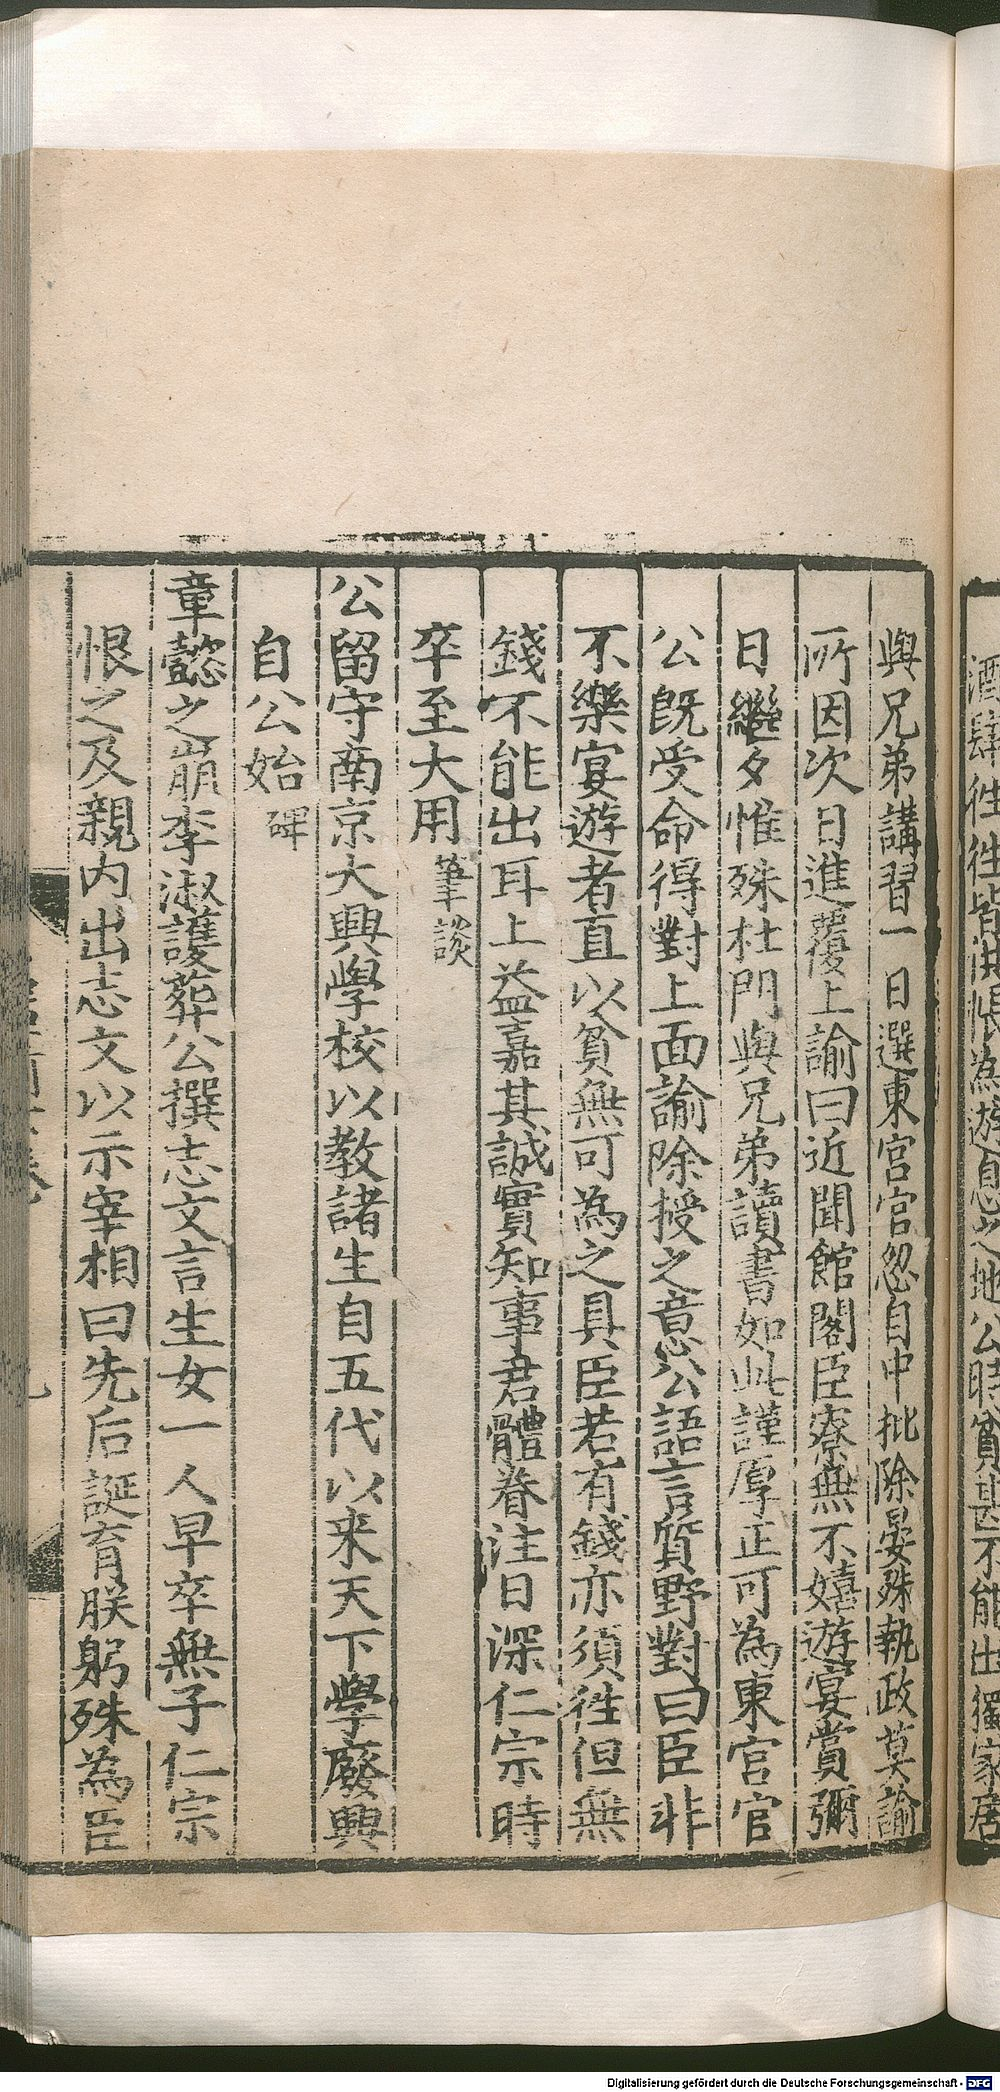 酒肆徃徃皆供帳為遊息之地公時貧甚不能出獨家居
與兄弟講習一日選東宮官忽自中批除晏殊執政莫諭
所因次日進覆上諭曰近聞館閣臣寮無不嬉遊宴賞彌
日繼夕惟殊杜門與兄弟讀書如此謹厚正可為東宮官
公旣受命得對上面諭除授之意公語言質野對曰臣非
不樂宴遊者直以貧無可為之具臣若有錢亦須徃但無
錢不能出耳上益嘉其誠實知事君體眷注日深仁宗時
卒至大用 筆談
公留守南京大興學校以教諸生自五代以来天下學廢興
自公始 碑
章懿之崩李淑護葬公撰志文言生女一人早卒無子仁宗
恨之及親內出志文以示宰相曰先后誕育朕躬殊為臣
Digitalisierung gefördert durch die Deutsche Forschungsgemeinschaft - DFG